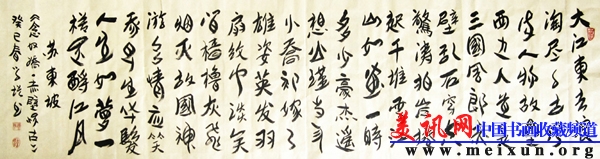 大江東去浪
淘尽千古风
流人物故垒
西边人道是
三國周郎赤
壁乱石穿空
驚濤拍岸捲
起千堆雪江
山如画一時
多少豪杰遥
想公瑾当年
小喬初嫁了
雄姿英发羽
扇纶巾谈笑
间樯橹灰飞
烟灭故国神
游多情應笑
我早生华髮
人生如夢一
樽还酹江月
苏东坡
念奴娇赤壁怀古
癸巳春
美讯网
中国书画收藏频道
www.meixun.org